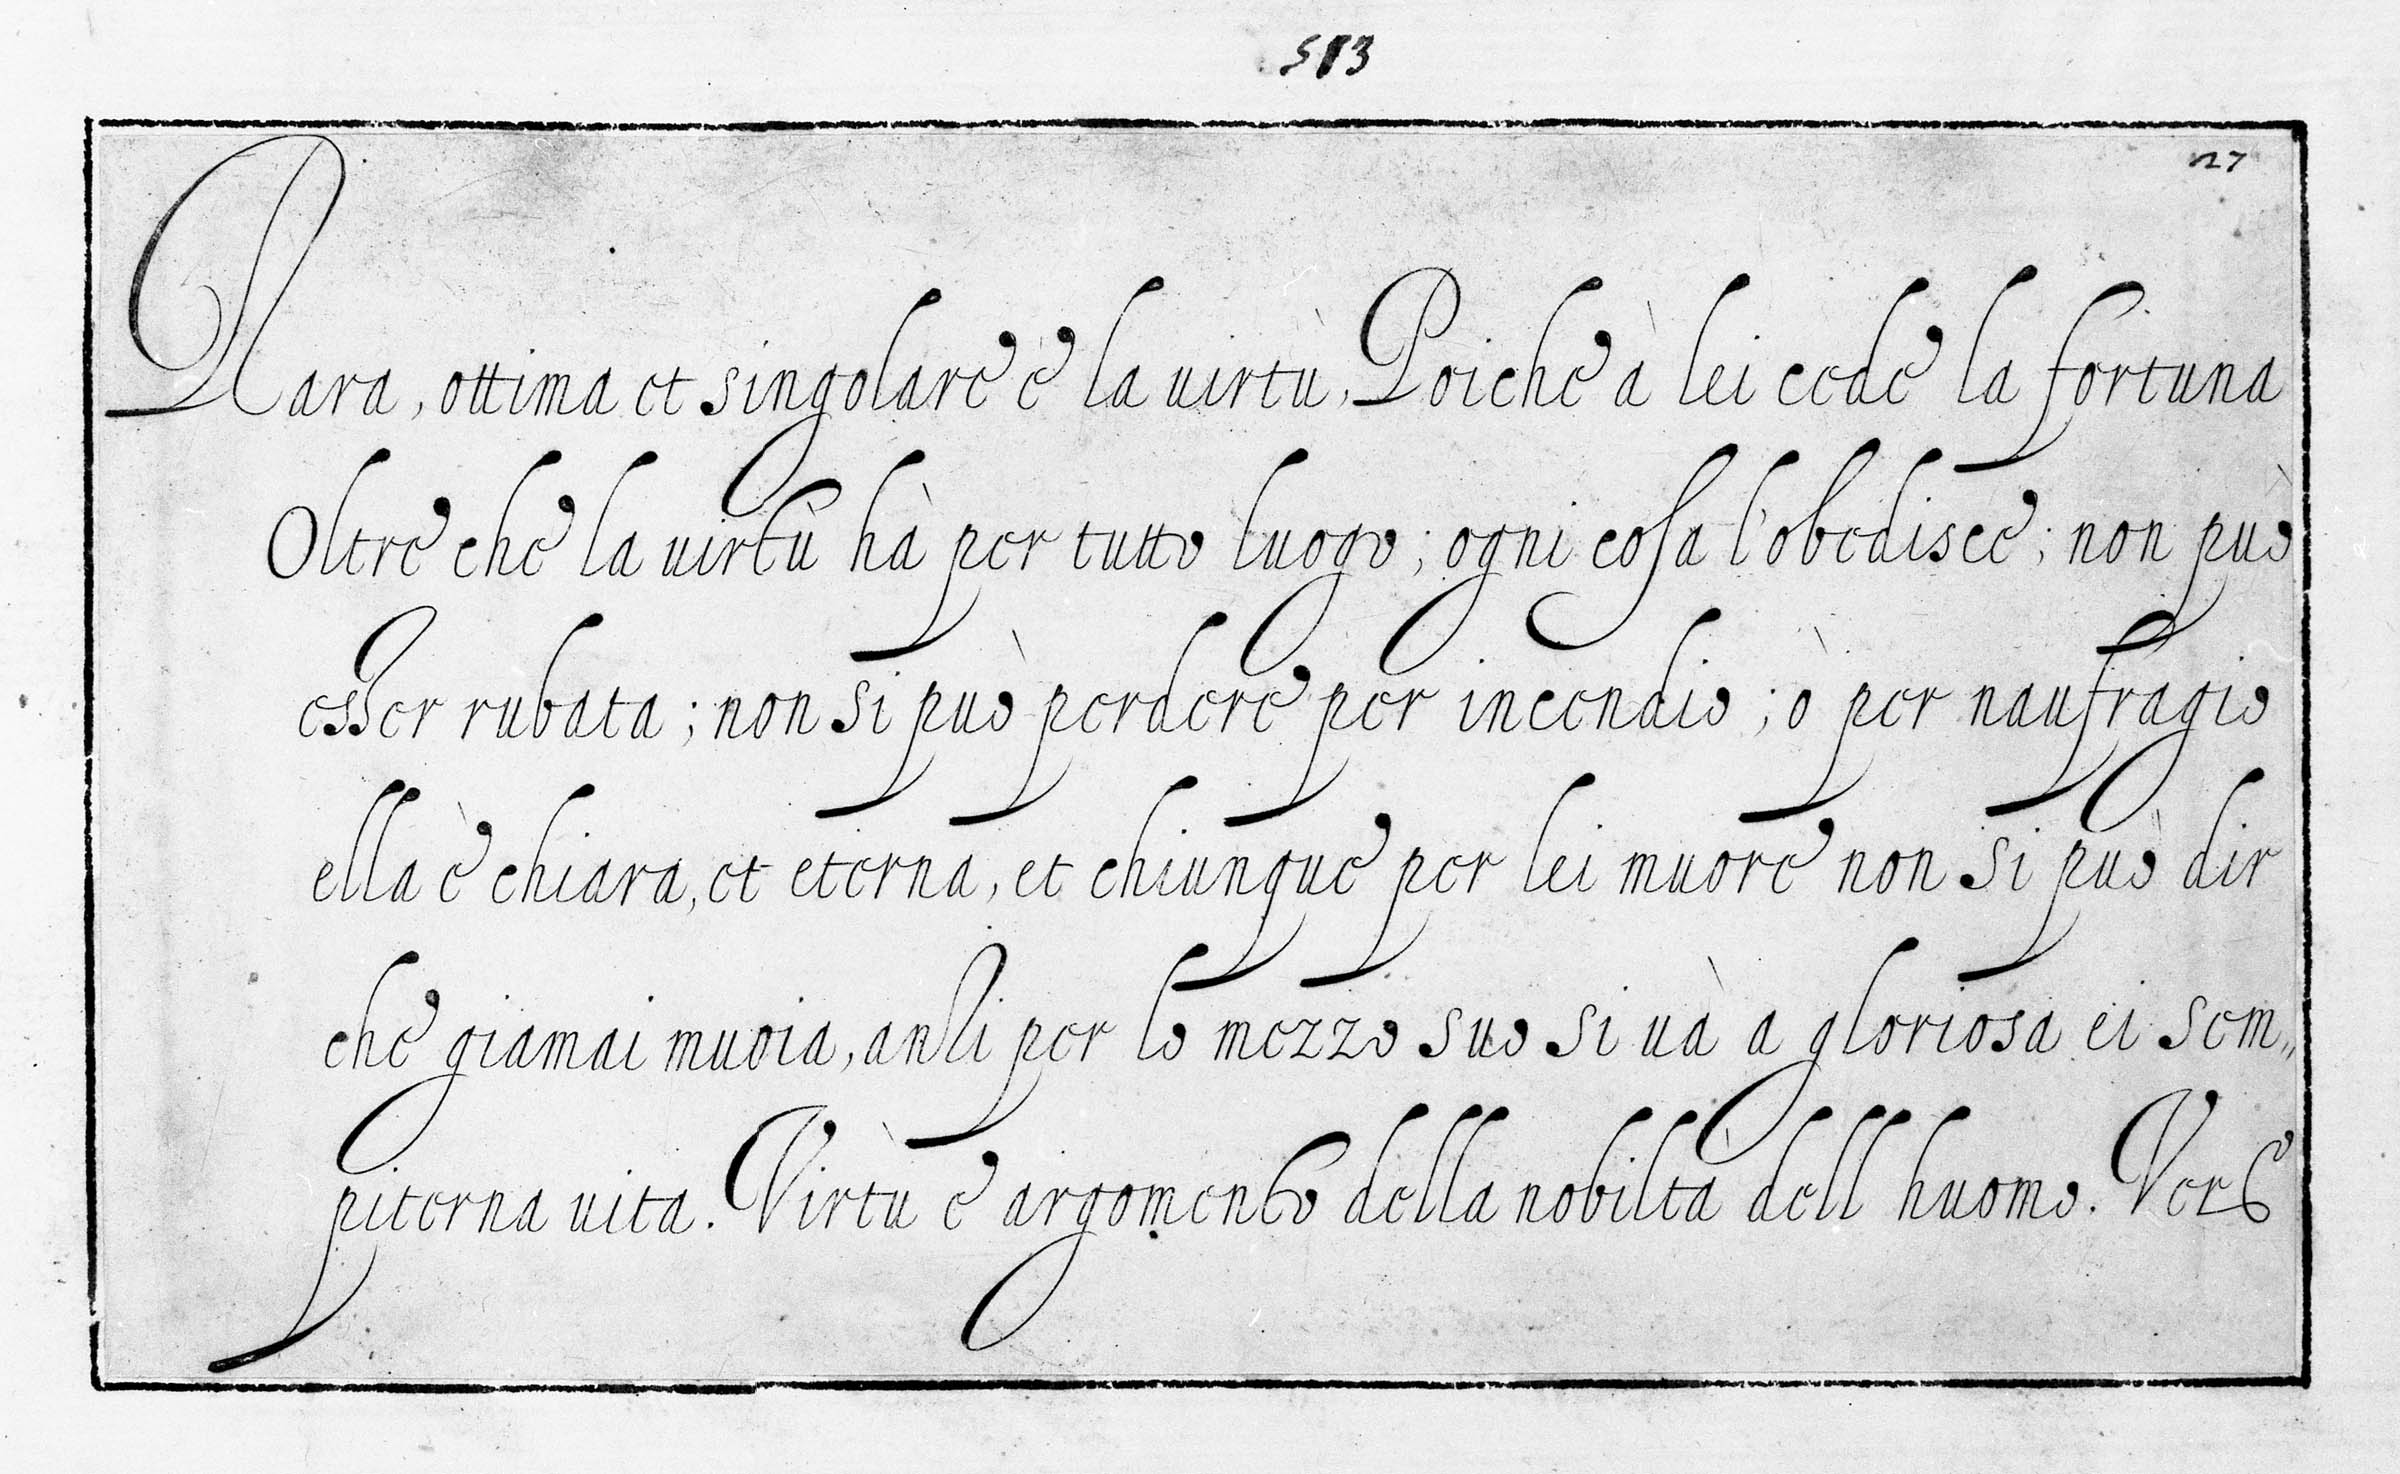 513
27
Rara, ottima et singolare è la uirtù, Poiche à lei cede la fortuna
Oltre che la uirtù hà per tutto luogo; ogni cosa l'obedisce; non può
esser rubata; non si può perdere per incendio; ò per naufragio
ella è chiara, et eterna, et chiunque per lei muore non si può dir
che giamai muoia, ansi per lo mezzo suo si uà a gloriosa ei sem„
piterna uita. Virtù e argomento della nobiltà dell huomo.